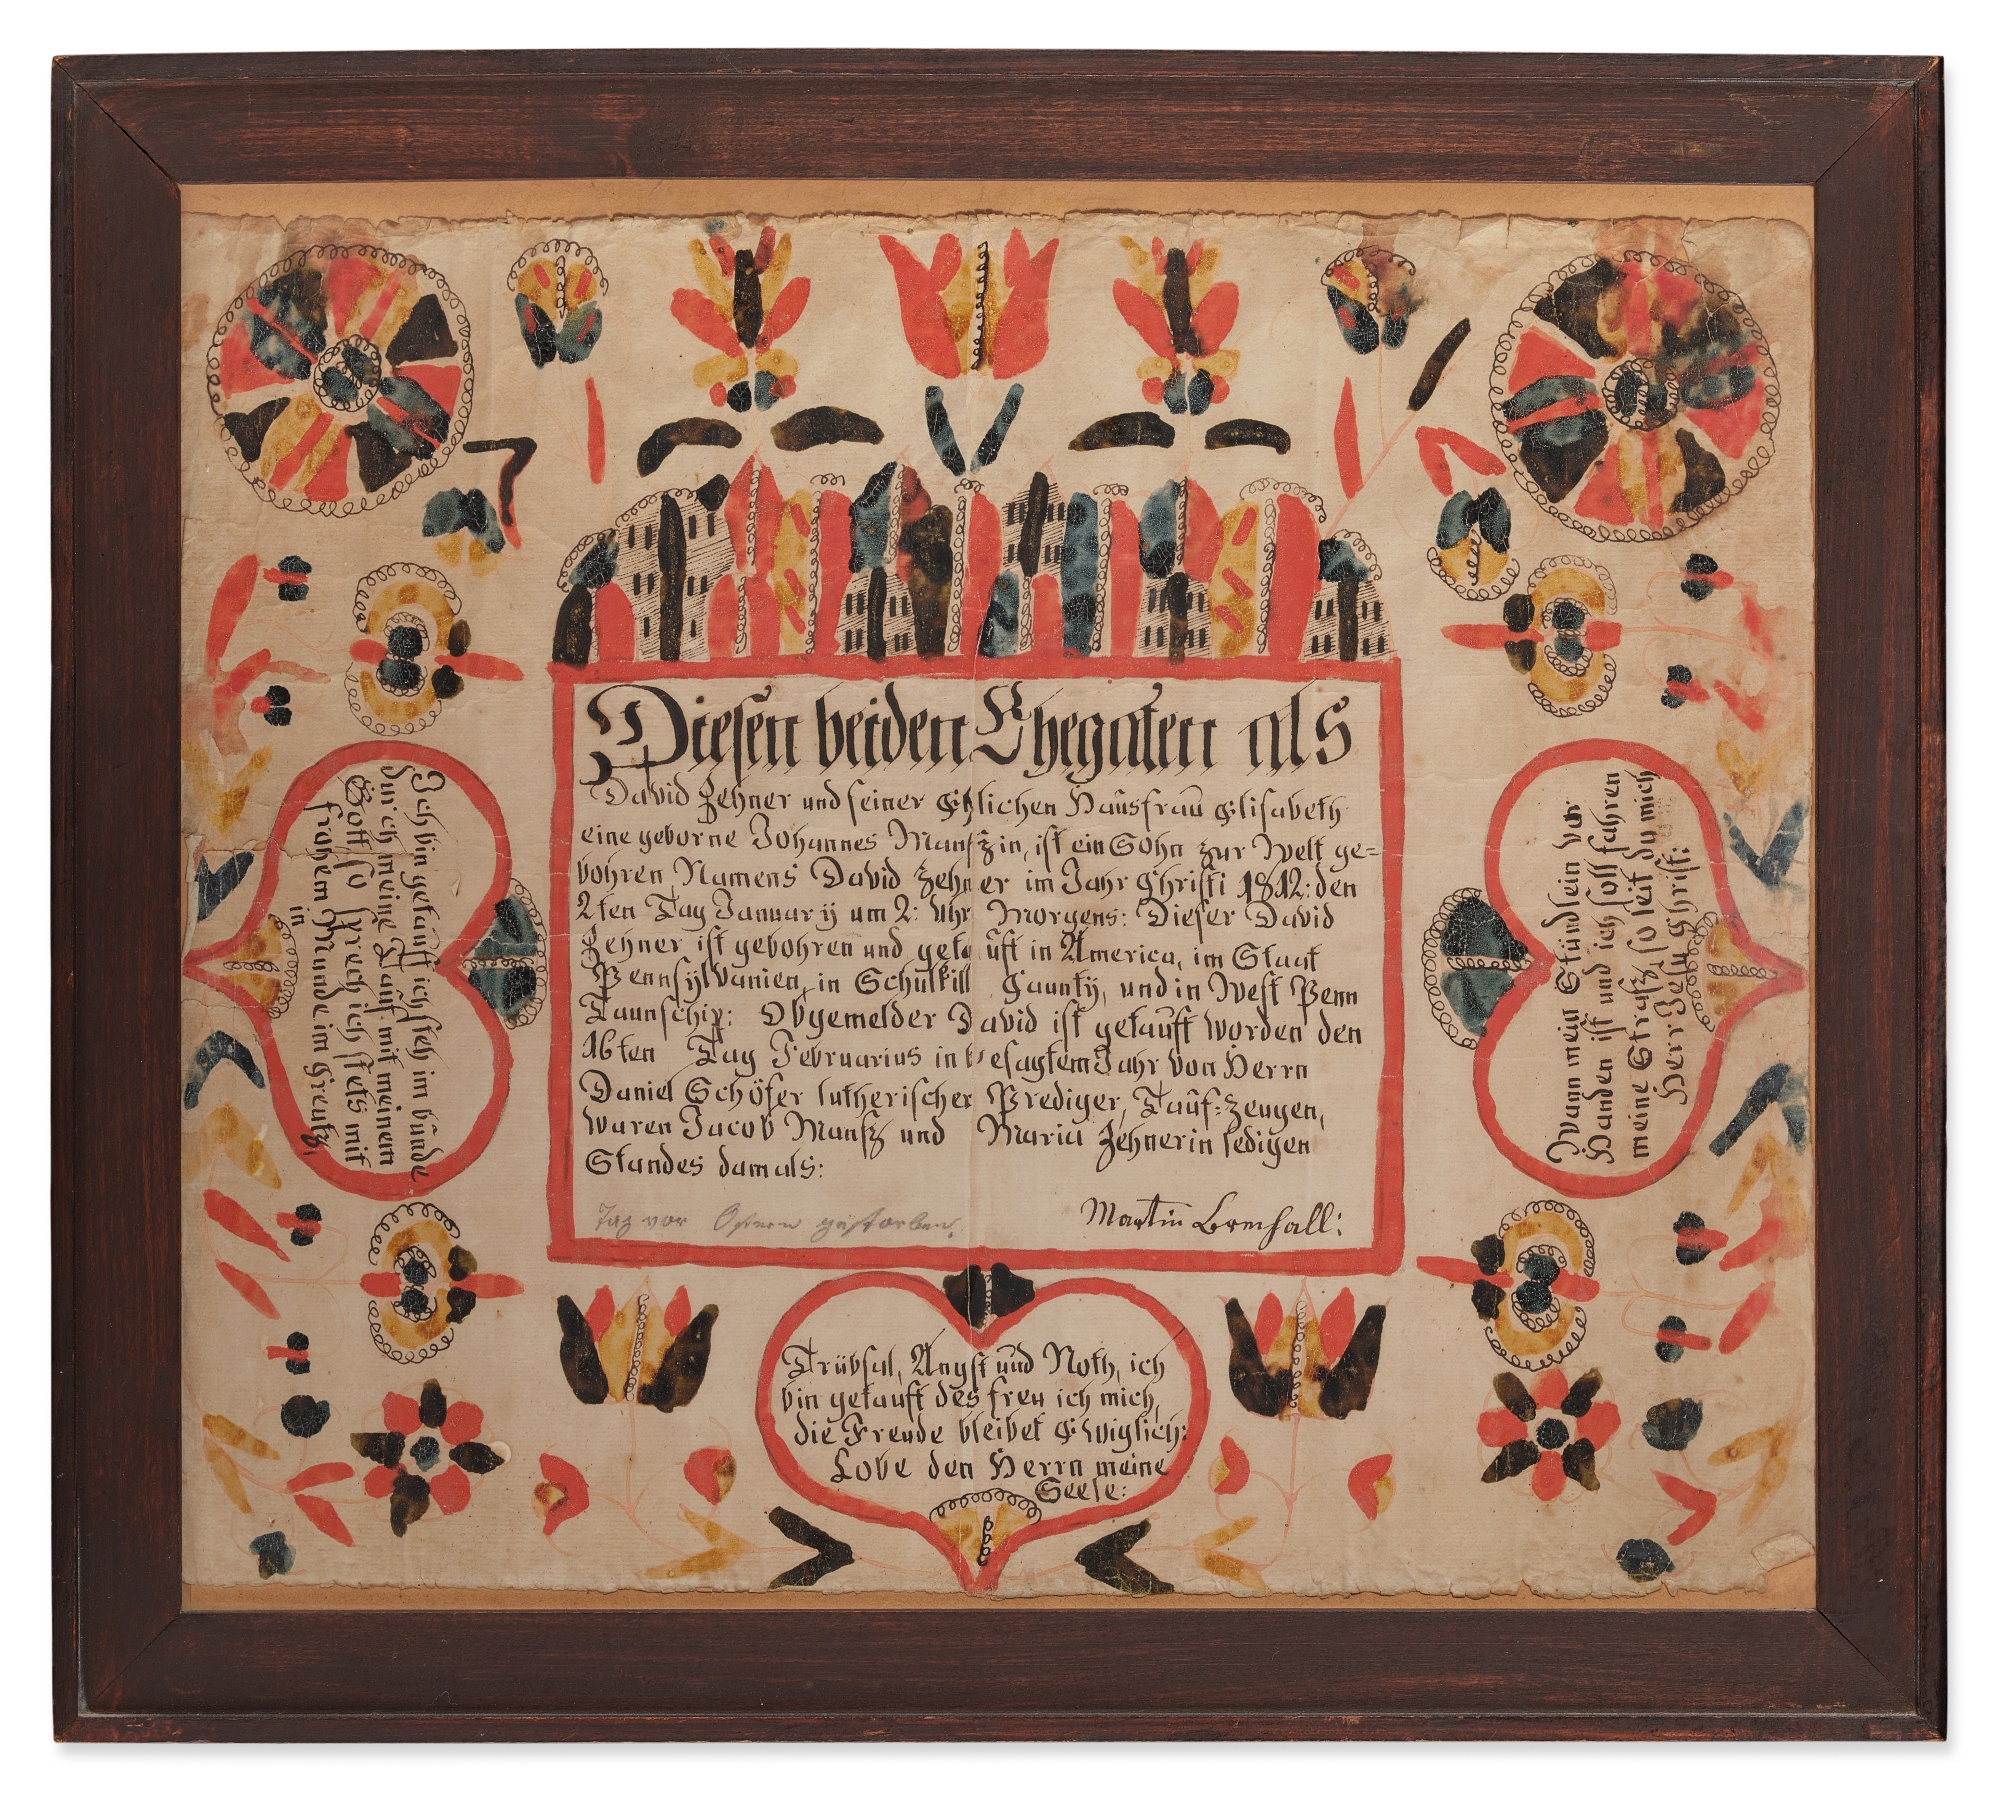 Diesen beiden Ehegaten als
David Zehner und seiner Ehlichen Haũsfraũ Elisabeth
eine geborne Johannes Mansz in, ist ein Sohn zur Welt ge=
bohren, Namens David Zehner im Jahr Christi 1812: den
2ten Tag Januarÿ um 2: Uhr Morgens: Dieser David
Zehner ist gebohren und getaũft in America, im Staat
Pennsylvanien, in Schulkill Caunty, und in West Penn
Taunschip: Obgemelder David ist getaũft worden den
16ten Tag Februarius in besagtem Jahr von Herrn
Daniel Schöfer lutherischer Prediger, Taũf=zeugen,
waren Jacob Mansz und Maria Zehnerin ledigen
Standes damals:
Tag vor Ostern gestorben.
Martin :
Ich bin getaũft ich steh im bunde
durch meine Taũf mit meinem
Gott so sprech ich stets mit
frohem Munde im Creutz,
in
Wann mein Stündlein vor
Handen ist und ich soll fahren
meine Strasz, so leit du mich
Herr Jesu Christ:
Trübsal, Angst und Noth, ich
bin getauft des freu ich mich,
die Freude bleibet Ewiglich:
Lobe den Herrn meine
Seele: